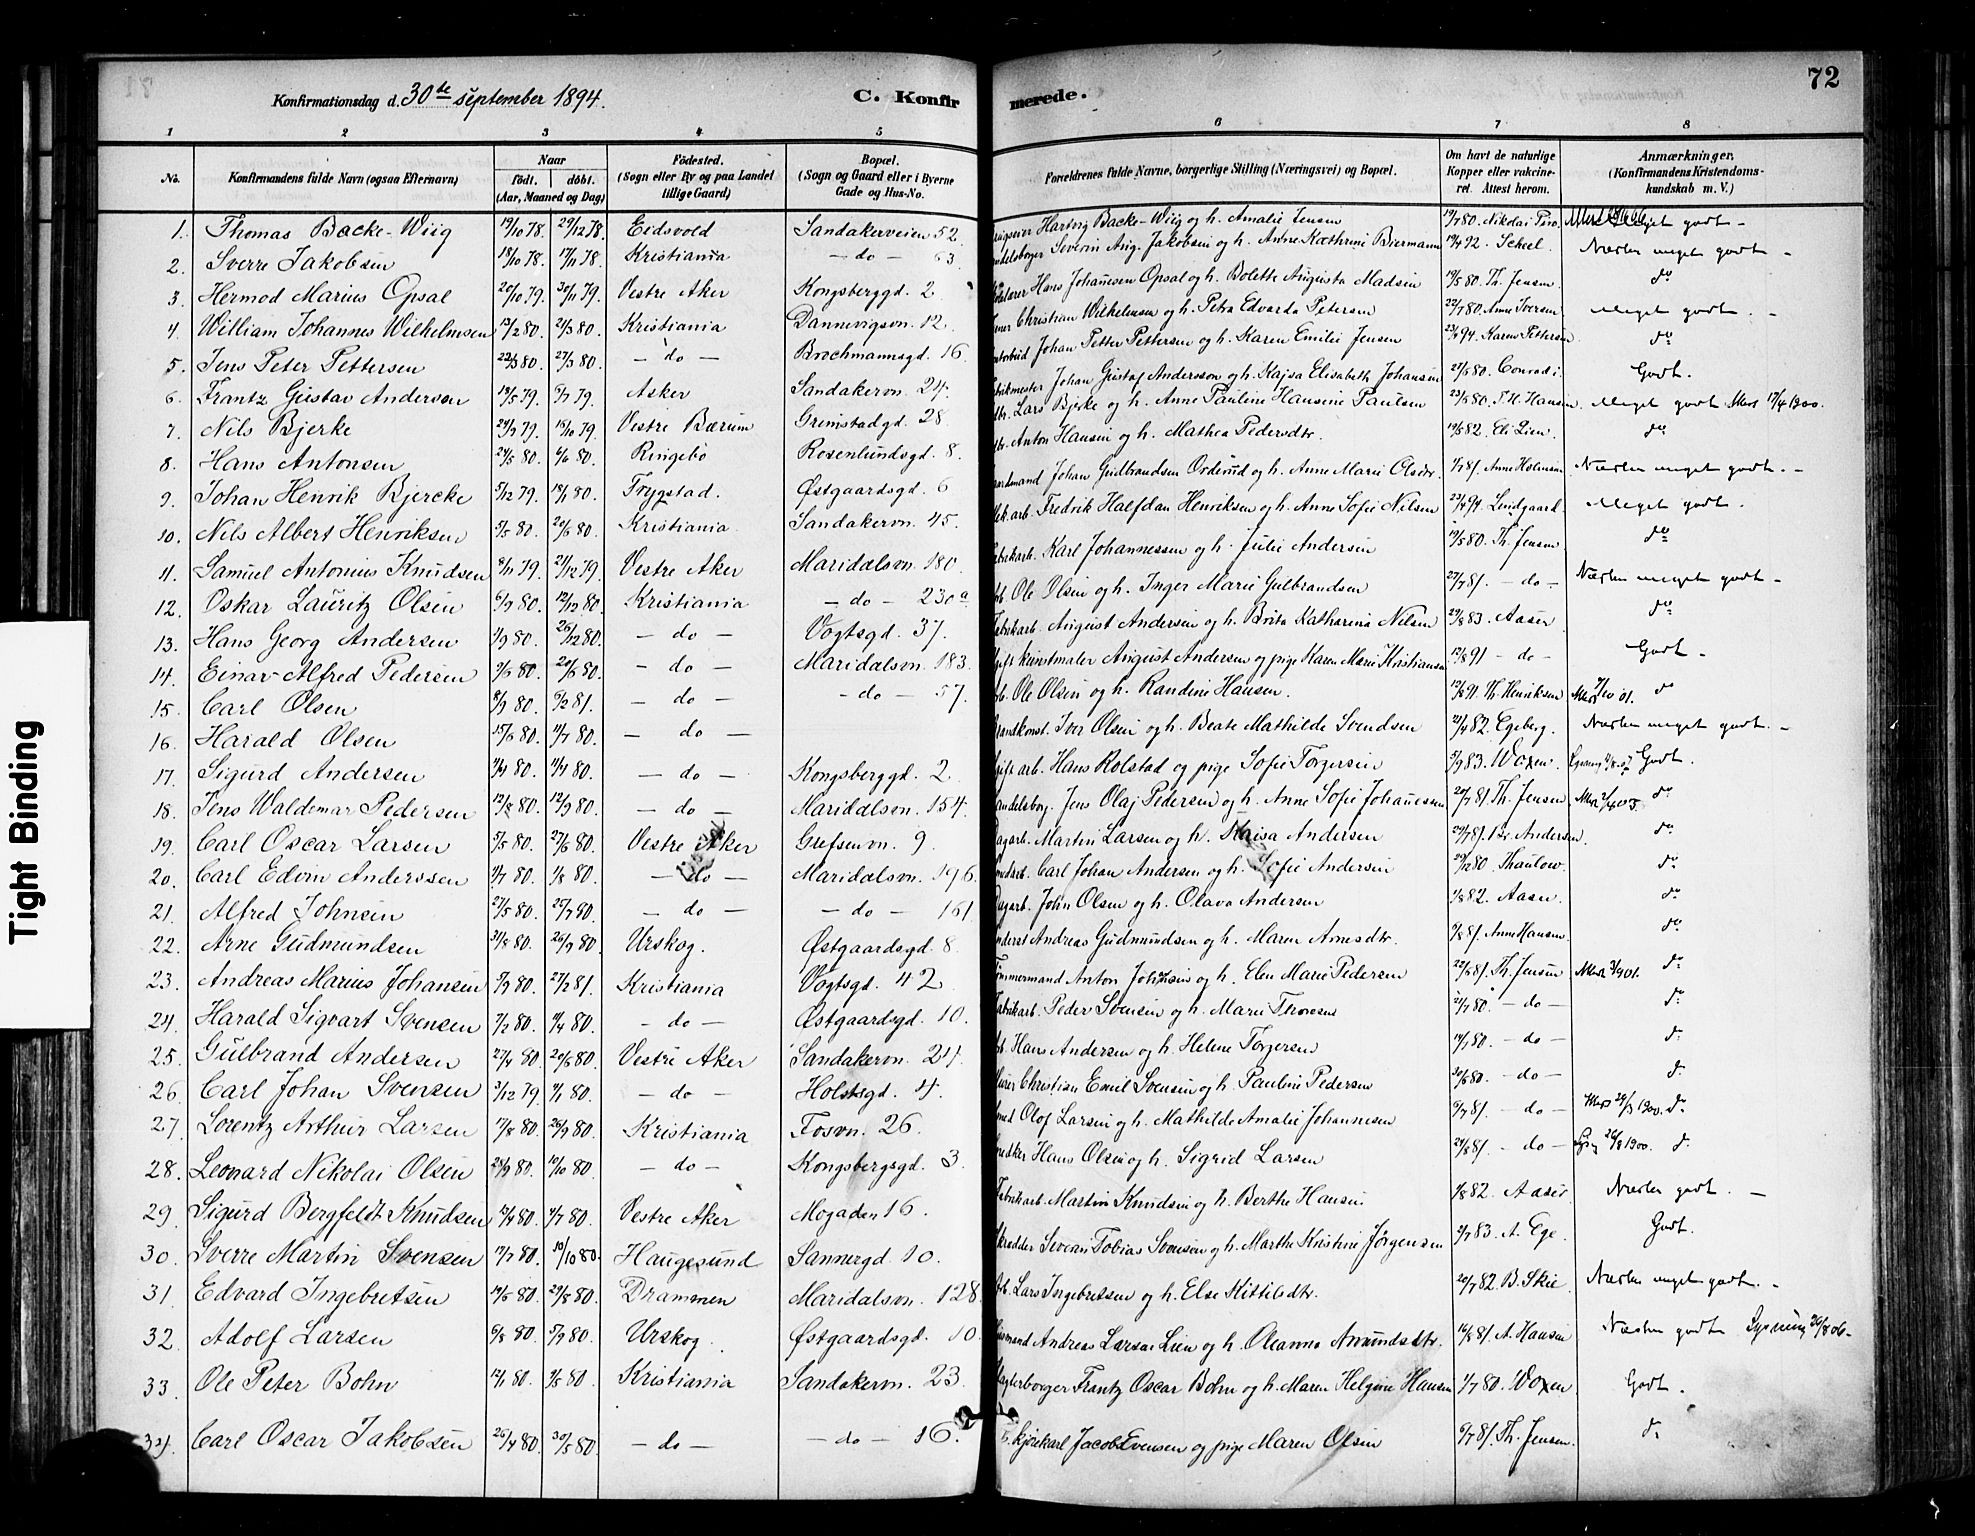 72
Konfirmationsdag d. 30te september 1894. C. Konfir merede.
1 2 3 4 5 6 7 8
No. Konfirmandens fulde Navn (ogsaa Efternavn) Naar født. døbt. (Aar, Maaned og Dag) Fødested. (Sogn eller By og paa Landet tillige Gaard) Bopæl. (Sogn og Gaard eller i Byerne Gade og Hus-No. Forældrenes fulde Navne, borgerlige Stilling (Næringsvei) og Bopæl. Om havt de naturlige Kopper eller vaccineret. Attest herom. Anmærkninger. (Konfirmandens Kristendomskundskab m. V.)
1. Thomas Backe-Wiig 19/10 78. 29/12 78. Eidsvold Sandakerveien 52. Hartvig Backe-Wiig og h. Amalie Jensen 19/7 80. Nikolai Meget godt -
2. Sverre Jakobsen 18/10 78. 17/11 78. Kristiania - do - 63. Severin Aug. Jakobsen og h. Anne Kathrine Biermann 19/4 92. Scheel. Næsten meget godt -
3. Hermod Marius Opsal 20/10 79. 30/11 79. Vestre Aker Kongsberggd. 2 Hans Johansen Opsal og h. Bolette Augusta Madsen 19/5 80. Th. Jensen do
4. William Johannes Wilhelmsen 13/2 80. 21/3 80. Kristiania Dannevigsvn. 12. Christian Wilhelmsen og h. Petra Edvarda Petersen 22/7 80. Anne Iversen Meget godt. -
5. Jens Peter Pettersen 22/3 80. 27/3 80. - do - Brochmannsgd. 16. Johan Petter Pettersen og h. Karen Emilie Jensen 23/8 94. Karen Pettersen do
6. Frantz Gustav Anderson 18/5 79. 6/7 79. Asker Sandakervn. 24. Johan Gustaf Andersson og h. Kajsa Elisabeth Johansen 21/5 80. Conradi. Godt.
7. Nils Bjerke 29/7 79. 18/10 79. Vestre Bærum Grimstadgd. 28 Lars Bjerke og h. Anne Pauline Hansine Paulsen 23/6 80. T. H. Hansen Meget godt 17/4 1900.
8. Hans Antonsen 24/5 80. 6/6 80. Ringebø Rosenlundsgd. 8. Anton Hansen og h. Mathea Pedersdtr. 19/5 82. Eli Lien. do
9. Johan Henrik Bjercke 5/12 79. 18/1 80. Trygstad. Østgaardsgd. 6 Johan Gudbrandsen Orderud og h. Anne Marie Olsdtr. 1/7 81. Anne Holmsen Næsten meget godt. -
10. Nils Albert Henriksen 5/5 80. 20/6 80. Kristiania. Sandakervn. 45. Fredrik Halfdan Henriksen og h. Anne Sofie Nilsen 23/4 94. Lindgaard. Meget godt.
11. Samuel Antonius Knudsen 8/11 79. 21/12 79. Vestre Aker Maridalsvn. 180. Karl Johannessen og h. Julie Andersen 19/5 80. Th. Jensen do
12. Oskar Lauritz Olsen 6/9 80. 12/12 80. Kristiania - do - 230a Ole Olsen og h. Inger Marie Gulbrandsen 27/7 81. - do - Næsten meget godt -
13. Hans Georg Andersen 1/9 80. 26/12 80. - do - Vogtsgd. 37. August Andersen og h. Brita Katharina Nilsen 29/8 83. Aaser do
14. Einar Alfred Pedersen 9/6 80. 20/6 80. - do - Maridalsvn. 183. kunstmaler August Andersen og pige Karen Marie Kristiansen 12/8 91 - do - Godt -
15. Carl Olsen 8/9 80. 6/2 81. - do - - do - 57. Ole Olsen og h. Randine Hansen. 12/6 91. Th. Henriksen do
16. Harald Olsen 15/6 80. 11/7 80. - do - Iver Olsen og h. Beate Mathilde Svendsen 21/4 82. Egeberg. Næsten meget godt. -
17. Sigurd Andersen - do - Kongsberggd. 2 Hans Rolstad og pige Sofie Torgersen 5/9 83. Woxen Godt.
18. Jens Waldemar Pedersen 12/8 80. 12/9 80. - do - Maridalsvn. 154. Jens Olaj Pedersen og h. Anne Sofie Johannesen 20/7 81. Th. Jensen do
19. Carl Oscar Larsen 5/5 80. 27/6 80. Vestre Aker Grefsenvn. 9. Martin Larsen og h. Kaisa Andersen 29/7 81. Andersen. do
20. Carl Edvin Anderssen 2/7 80. 1/8 80. - do - Maridalsvn. 196. Carl Johan Andersen og h. Sofie Andersen 29/12 80 Thaulow. do
21. Alfred Johnsen 27/5 80. 25/7 80. - do - - do - 161. John Olsen og h. Olava Andersen 1/8 82. Aaser do
22. Arne Gudmundsen 31/8 80. 26/9 80 Urskog. Østgaardsgd. 8. Andreas Gudmundsen og h. Maren Arnesdtr. 9/8 81. Anne Hansen do
23. Andreas Marius Johansen 5/9 80. 27/2 81. Kristiania Vogtsgd. 42 Anton Johansen og h. Elen Marie Pedersen 22/6 81. Th. Jensen do
24. Harald Sigvart Svensen 7/2 80. 11/4 80. - do - Østgaardsgd. 10. Peder Svensen og h. Marie Thoresen 21/7 80. - do - do
25. Gulbrand Andersen 27/4 80. 20/6 80. Vestre Aker Sandakervn. 24. Hans Andersen og h. Helene Torgersen 14/7 80. - do - do
26. Carl Johan Svensen 3/12 79. 1/1 80. - do - Holstsgd. 4. Christian Emil Svensen og h. Pauline Pedersen 20/6 80. - do - do
27. Lorentz Arthur Larsen 17/8 80. 26/9 80. Kristiania Fosvn. 26. Olof Larsen og h. Mathilde Amalie Johannesen 6/7 81. - do - 24/3 1900. do
28. Leonard Nikolai Olsen 28/9 80. 10/10 80. - do - Kongsbergsgd. 3. Hans Olsen og h. Sigrid Larsen 24/8 81. - do - 26/8 1900. do
29. Sigurd Bergfeldt Knudsen 12/4 80. 4/7 80. Vestre Aker Mogaden 16. Martin Knudsen og h. Berthe Hansen 1/8 82. Aaser. Næsten godt. -
30. Sverre Martin Svensen 17/7 80. 10/10 80. Haugesund Sannergd. 10. Severin Tobias Svensen og h. Marthe Kristine Jørgensen 2/7 83. A. Ege. Godt.
31. Edvard Ingebretsen 14/6 80. 29/8 80. Drammen Maridalsvn. 128. Lars Ingebretsen og h. Else Kittilsdtr. 20/7 82. B. Skie Næsten meget godt. -
32. Adolf Larsen 6/8 80. 5/9 80. Urskog. Østgaardsgd. 10. Andreas Larsen Lien og h. Oleanna Amundsdtr. 16/8 81. A. Hansen Næsten godt Lysning 26/8 06.
33. Ole Peter Bohn 12/1 80. 9/5 80. Kristiania Sandakervn. 23. Frantz Oscar Bohn og h. Maren Helgine Hansen 1/7 80. Woxen Godt.
34. Carl Oscar Jakobsen 26/4 80. 30/5 80. - do - - do - 16. kjørekarl Jacob Evensen og pige Maren Olsen 6/7 81. Th. Jensen. do
Tight Binding